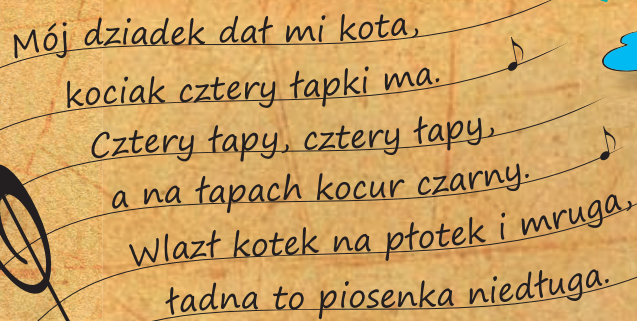 Mój dziadek dał mi kota,
kociak cztery łapki ma.
Cztery łapy, cztery łapy,
a na łapach kocur czarny.
Wlazł kotek na płotek i mruga,
ładna to piosenka niedługa.